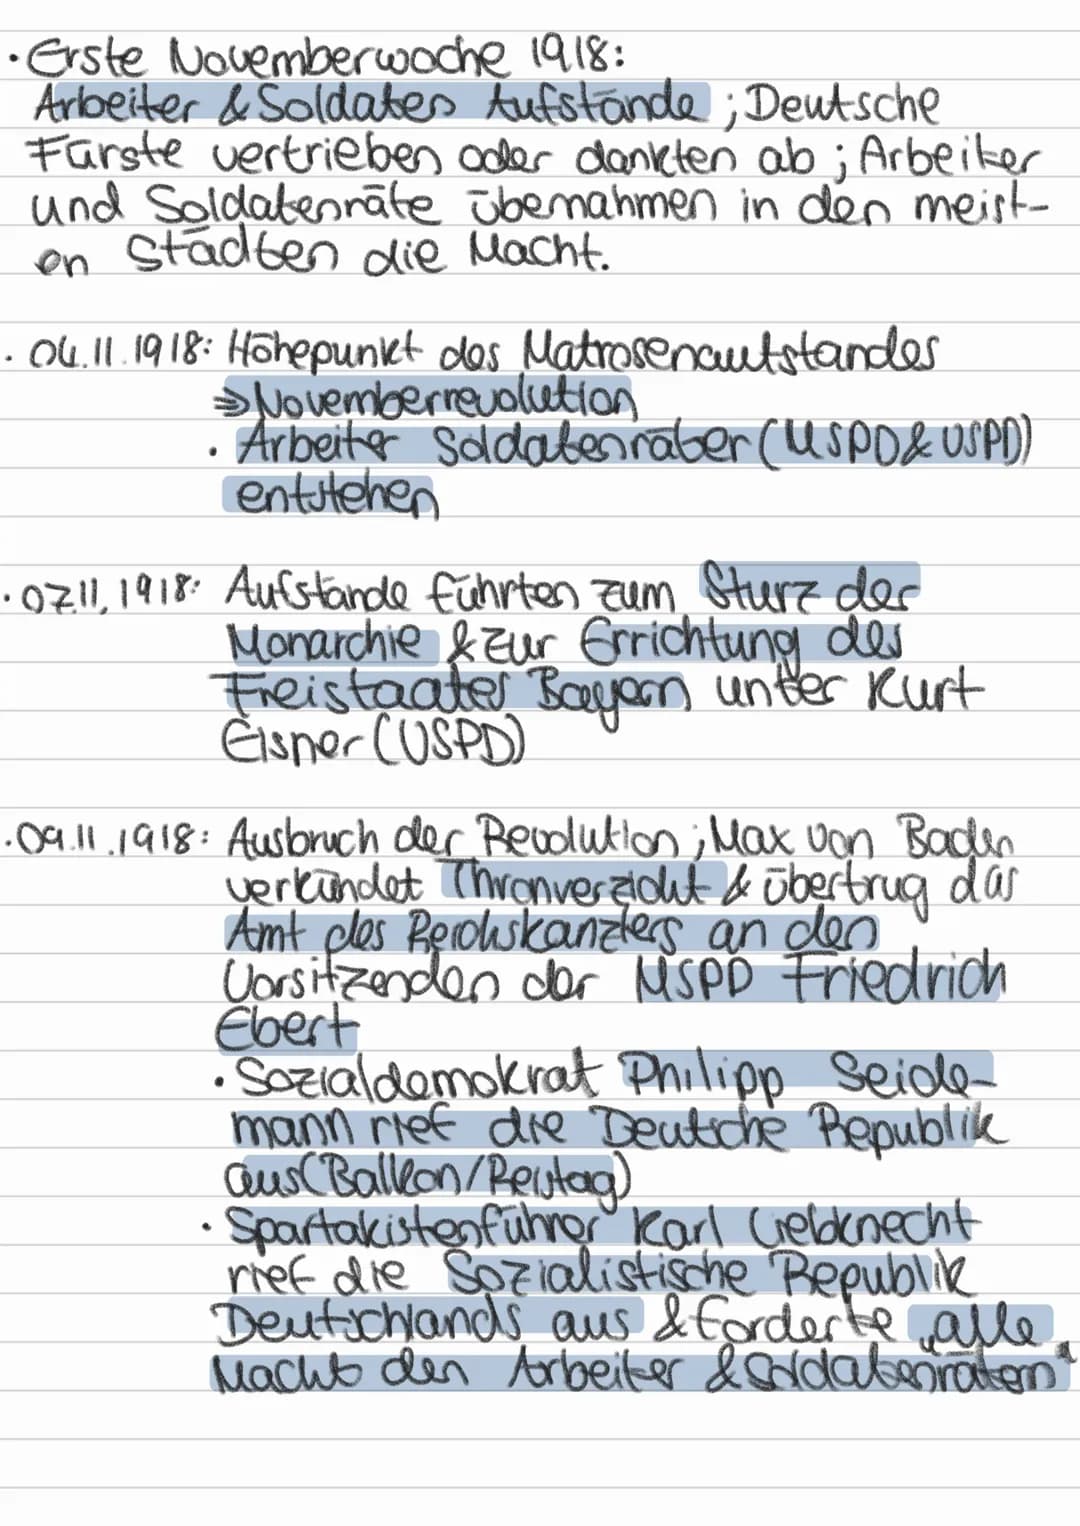 · Erste Novemberwoche 1918:
Arbeiter & Soldaten Aufstände ; Deutsche
Fürste vertrieben oder dankten ab ; Arbeiter
und Soldatenräte übernahmen in den meist-
en Städten die Macht.
· 04.11.1918: Höhepunkt des Matrosenaufstandes
⇒ Novemberrevolution
· Arbeiter Soldatenräter (USPD & USPD)
entstehen
· 07.11.1918: Aufstände führten zum Sturz der
Monarchie & zur Errichtung des
Freistaates Bayern unter Kurt
Eisner (USPD)
· 09.11.1918: Ausbruch der Revolution ; Max von Baden
verkündet Thronverzicht & übertrug das
Amt des Reichskanzlers an den
Vorsitzenden der MSPD Friedrich
Ebert
· Sozialdemokrat Philipp Seide-
mann rief die Deutsche Republik
aus (Balkon/Reistag)
· Spartakistenführer Karl Liebknecht
rief die Sozialistische Republik
Deutschlands aus & forderte „alle
Macht den Arbeiter & Soldatenrätern"